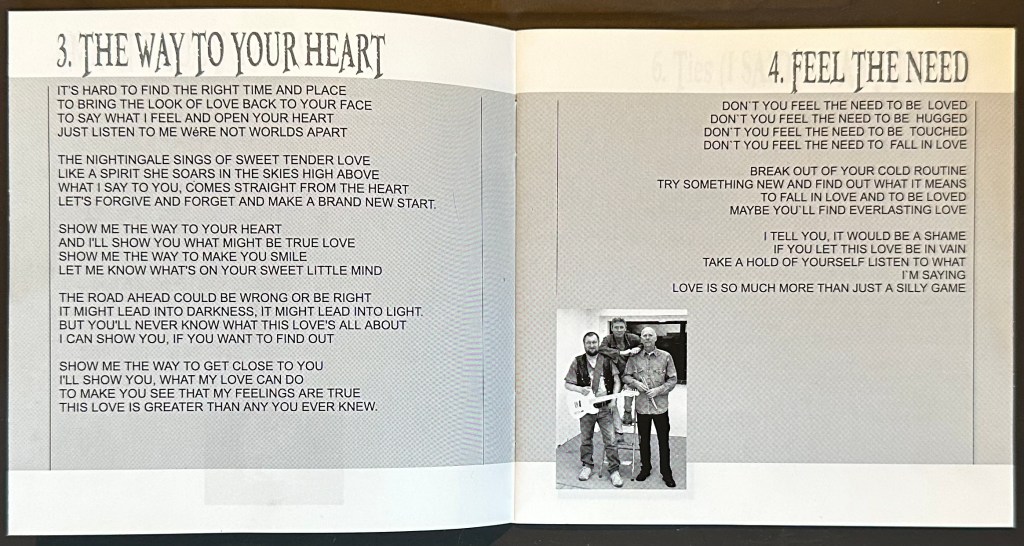 3. THE WAY TO YOUR HEART
IT'S HARD TO FIND THE RIGHT TIME AND PLACE
TO BRING THE LOOK OF LOVE BACK TO YOUR FACE
TO SAY WHAT I FEEL AND OPEN YOUR HEART
JUST LISTEN TO ME WéRE NOT WORLDS APART
THE NIGHTINGALE SINGS OF SWEET TENDER LOVE
LIKE A SPIRIT SHE SOARS IN THE SKIES HIGH ABOVE
WHAT I SAY TO YOU, COMES STRAIGHT FROM THE HEART
LET'S FORGIVE AND FORGET AND MAKE A BRAND NEW START.
SHOW ME THE WAY TO YOUR HEART
AND I'LL SHOW YOU WHAT MIGHT BE TRUE LOVE
SHOW ME THE WAY TO MAKE YOU SMILE
LET ME KNOW WHAT'S ON YOUR SWEET LITTLE MIND
THE ROAD AHEAD COULD BE WRONG OR BE RIGHT
IT MIGHT LEAD INTO DARKNESS, IT MIGHT LEAD INTO LIGHT.
BUT YOU'LL NEVER KNOW WHAT THIS LOVE'S ALL ABOUT
I CAN SHOW YOU, IF YOU WANT TO FIND OUT
SHOW ME THE WAY TO GET CLOSE TO YOU
I'LL SHOW YOU, WHAT MY LOVE CAN DO
TO MAKE YOU SEE THAT MY FEELINGS ARE TRUE
THIS LOVE IS GREATER THAN ANY YOU EVER KNEW.
4. FEEL THE NEED
DON`T YOU FEEL THE NEED TO BE LOVED
DON`T YOU FEEL THE NEED TO BE HUGGED
DON`T YOU FEEL THE NEED TO BE TOUCHED
DON`T YOU FEEL THE NEED TO FALL IN LOVE
BREAK OUT OF YOUR COLD ROUTINE
TRY SOMETHING NEW AND FIND OUT WHAT IT MEANS
TO FALL IN LOVE AND TO BE LOVED
MAYBE YOU`LL FIND EVERLASTING LOVE
I TELL YOU, IT WOULD BE A SHAME
IF YOU LET THIS LOVE BE IN VAIN
TAKE A HOLD OF YOURSELF LISTEN TO WHAT
I`M SAYING
LOVE IS SO MUCH MORE THAN JUST A SILLY GAME